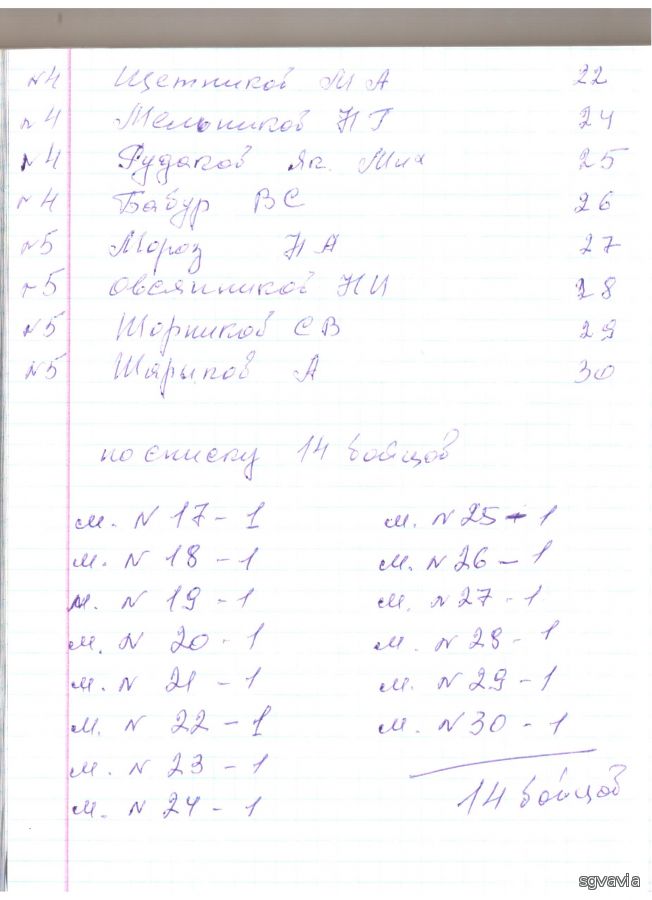 N4 Щетников М А 22
N4 Мельников Н Г 24
N4 Рудаков Як. Мих 25
N4 Бабур ВС 26
N5 Мороз Н А 27
N5 Овсянников Н И 28
N5 Шорников С В 29
N5 Шарыпов А 30
по списку 14 бойцов
м. N 17 - 1
м. N 18 - 1
м. N 19 - 1
м. N 20 - 1
м. N 21 - 1
м. N 22 - 1
м. N 23 - 1
м. N 24 - 1
м. N 25 - 1
м. N 26 - 1
м. N 27 - 1
м. N 28 - 1
м. N 29 - 1
м. N 30 - 1
14 бойцов
sgvavia